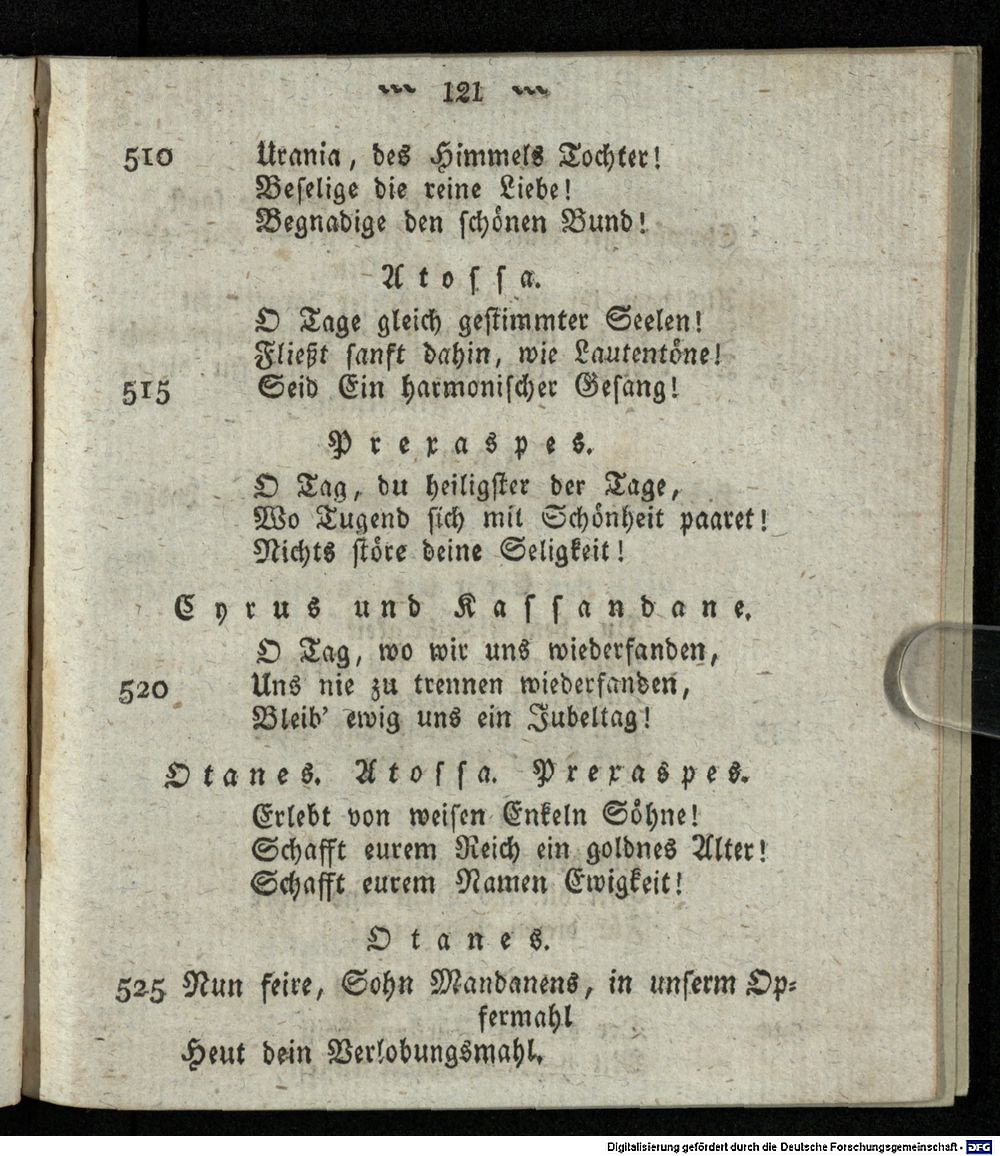 121
510 Urania, des Himmels Tochter!
Beselige die reine Liebe!
Begnadige den schönen Bund!
Atossa.
O Tage gleich gestimmter Seelen!
Fließt sanft dahin, wie Lautentöne!
515 Seid Ein harmonischer Gesang!
Prexaspes.
O Tag, du heiligster der Tage,
Wo Tugend sich mit Schönheit paaret!
Nichts störe deine Seligkeit!
Cyrus und Kassandane.
O Tag, wo wir uns wiederfanden,
520 Uns nie zu trennen wiederfanden,
Bleib' ewig uns ein Jubeltag!
Otanes. Atossa. Prexaspes.
Erlebt von weisen Enkeln Söhne!
Schafft eurem Reich ein goldnes Alter!
Schafft eurem Namen Ewigkeit!
Otanes.
525 Nun feire, Sohn Mandanens, in unserm Op-
fermahl
Heut dein Verlobungsmahl.
Digitalisierung gefördert durch die Deutsche Forschungsgemeinschaft - DFG